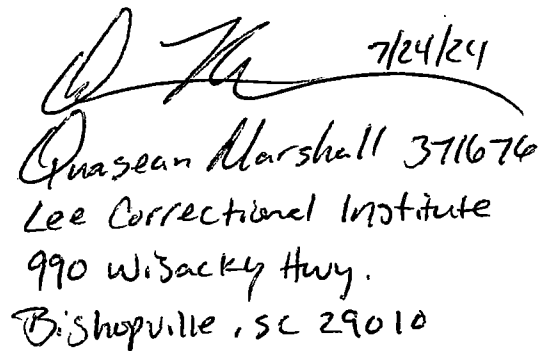 7/24/24
Quasean Marshall 371676
Lee Correctional Institute
990 Wisacky Hwy.
Bishopville, SC 29010